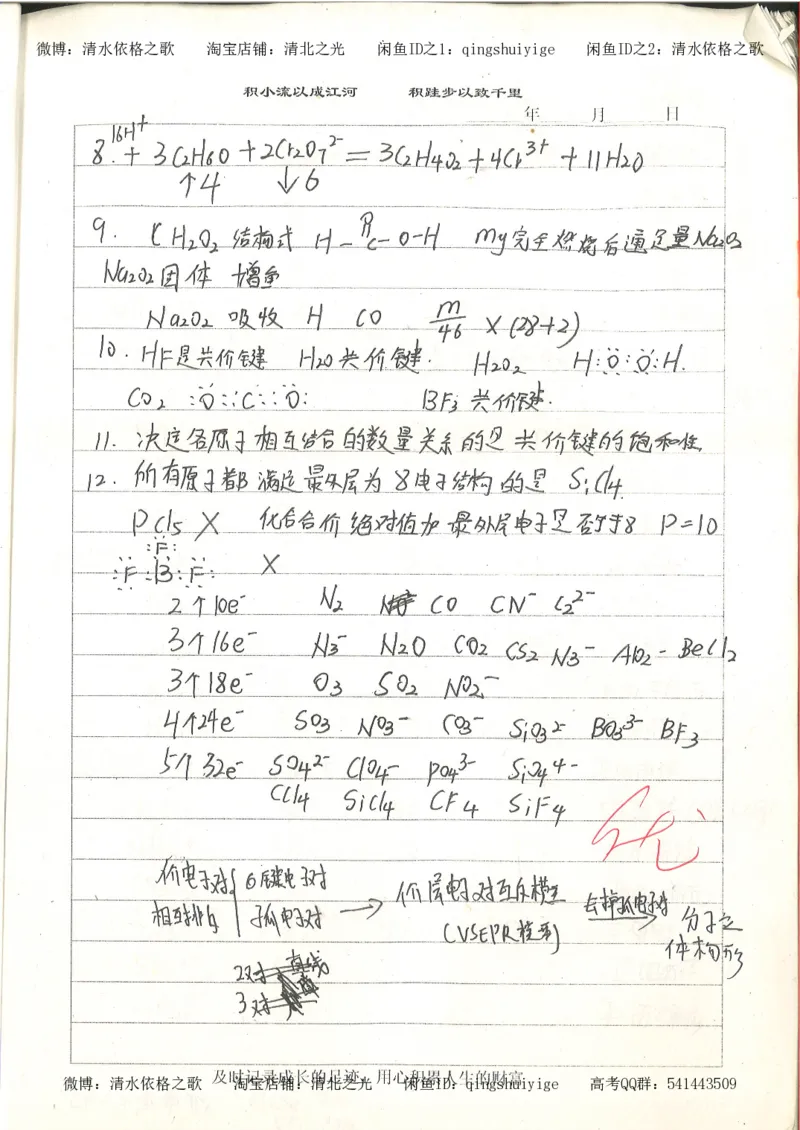 微博：清水依格之歌 淘宝店铺：清北之光 闲鱼ID之1：qingshuiyige 闲鱼ID之2：清水依格之歌
积小流以成江河 积跬步以致千里
年 月 日
16H⁺
8. + 3C2H6O + 2Cr2O7²⁻ = 3C2H4O2 + 4Cr³⁺ + 11H2O
↑4 ↓6
9. CH2O2 结构式 H–C–O–H mg完全燃烧后通足量Na2O2
Na2O2固体 增重
Na2O2 吸收 H CO m/46 × (28+2)
10. HF是共价键 H2O共价键. H2O2 H:Ö:Ö:H.
CO2 :Ö::C::Ö: BF3 共价键.
11. 决定各原子相互结合的数量关系的是 共价键的饱和性
12. 所有原子都满足最外层为8电子结构的是 SiCl4
PCl5 X 化合合价绝对值加最外层电子是否等于8 P=10
:F:
:F:B:F: X
2个10e⁻ N2 CO CN⁻ C2²⁻
3个16e⁻ N3⁻ N2O CO2 CS2 N3⁻ AlO2⁻ BeCl2
3个18e⁻ O3 SO2 NO2⁻
4个24e⁻ SO3 NO3⁻ CO3⁻ SiO3²⁻ BO3³⁻ BF3
5个32e⁻ SO4²⁻ ClO4⁻ PO4³⁻ SiO4⁴⁻
CCl4 SiCl4 CF4 SiF4
优
价电子对 σ键电子对
相互排斥 孤电子对 → 价层电子对互斥模型 去掉孤电子对 分子立
(VSEPR模型) 体构形
2对 直线
3对
及时记录成长的足迹，用心积累人生的财富
微博：清水依格之歌 淘宝店铺：清北之光 闲鱼ID之1：qingshuiyige 高考QQ群：541443509